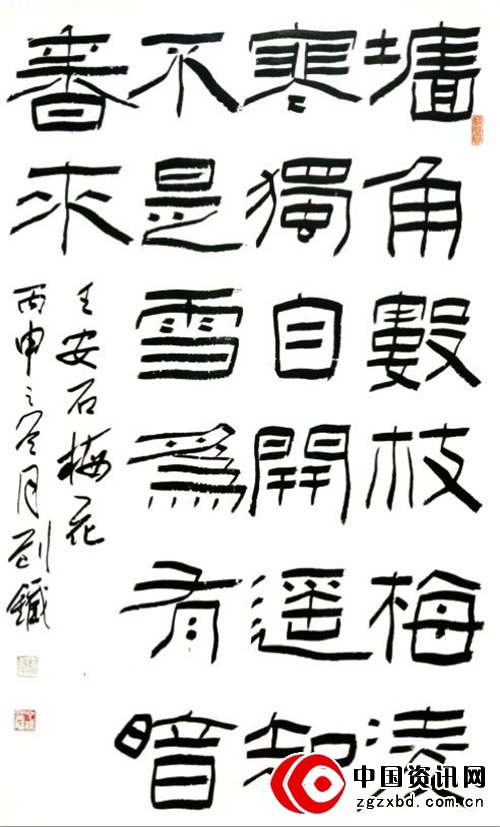 墙角數枝梅凌
寒獨自開遥知
不是雪爲有暗
香来
王安石梅花
丙申之冬月刘鐵
中国资讯网
zgzxbd.com.cn